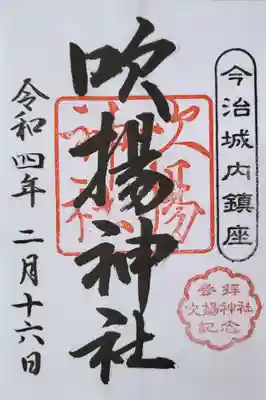 今治城内鎮座
吹揚神社
令和四年 二月十六日
吹揚
神社
参拝
吹揚神社
記念